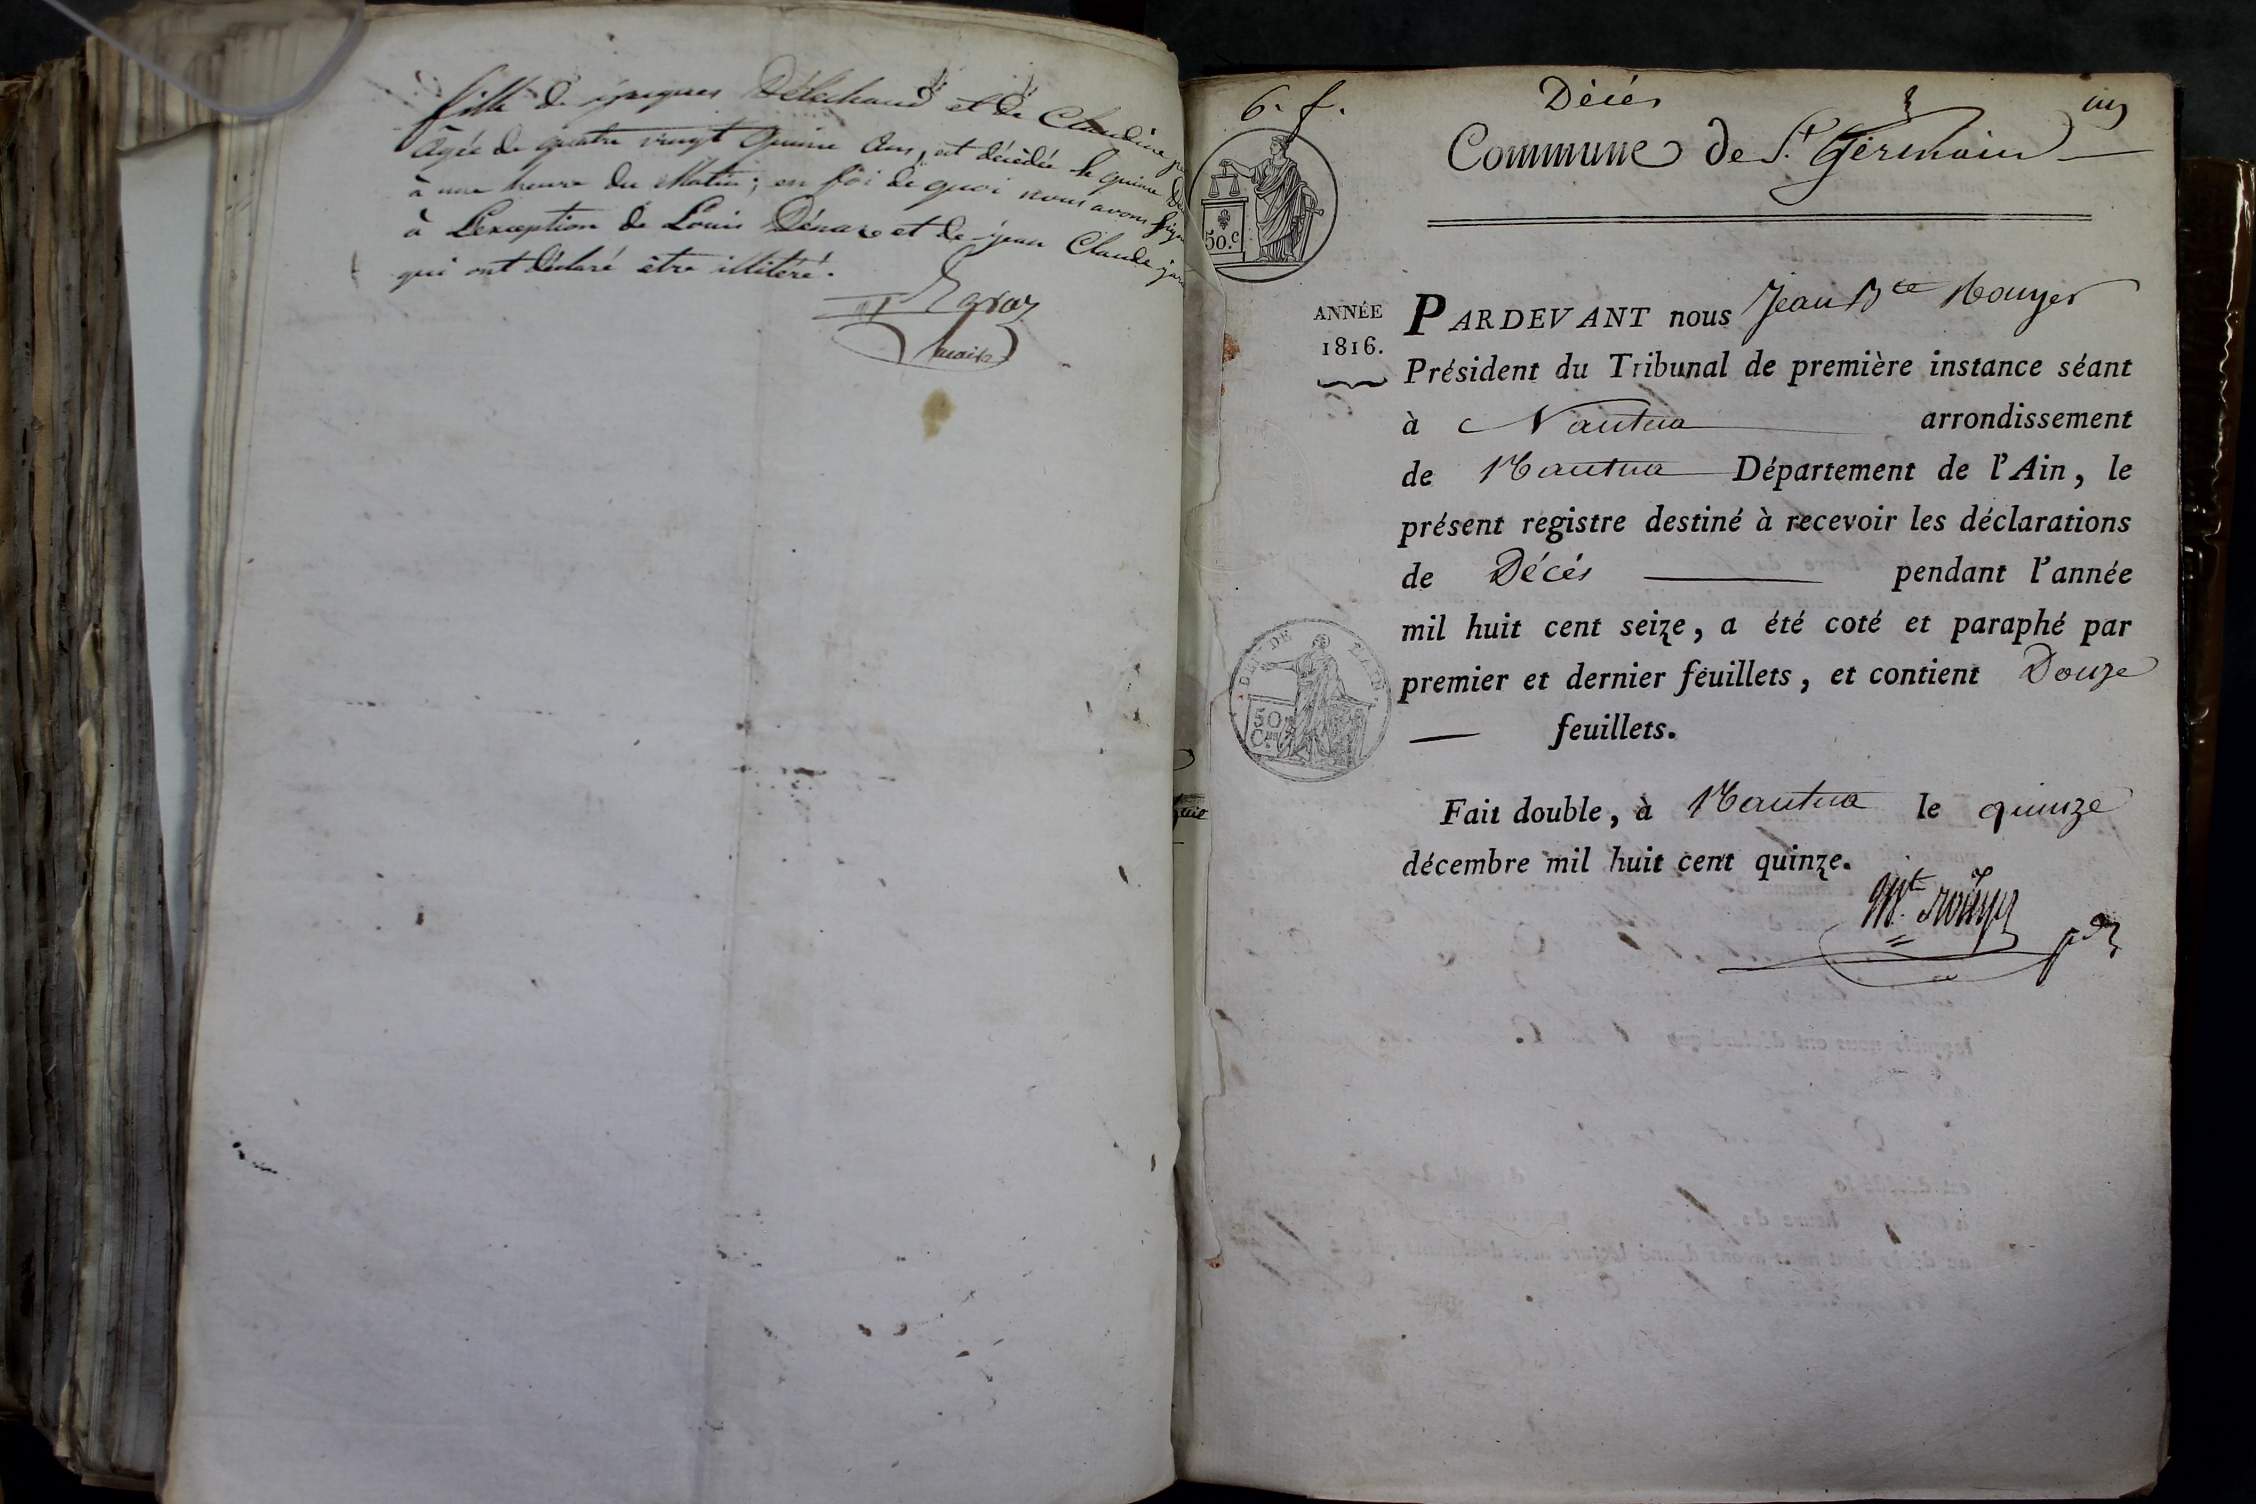 fille de jacques Délachaud et de Claudine
âgée de quatre vingt quinze ans, est décédée le quinze
à une heure du Matin; en foi de quoi nous avons signé
à L'exception de Louis et de jean Claude
qui ont déclaré être illitéré.
maire
6. f. Décés un
Commune de St. Germain
50.c
ANNÉE
1816.
PARDEVANT nous Jean Bte Rouyer
Président du Tribunal de première instance séant
à Nantua arrondissement
de Nantua Département de l'Ain, le
présent registre destiné à recevoir les déclarations
de Décés pendant l'année
mil huit cent seize, a été coté et paraphé par
premier et dernier feuillets, et contient Douze
feuillets.
DEP. DE L'AIN
50
C.
Fait double, à Nantua le quinze
décembre mil huit cent quinze.
Rouyer